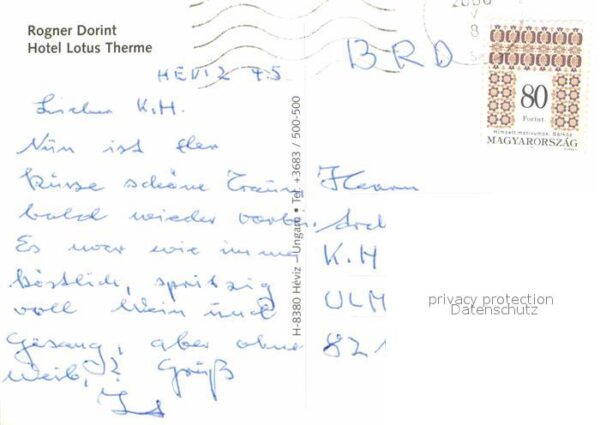 Rogner Dorint
Hotel Lotus Therme
HÉVIZ 7.5
Lieber K.H.
Nun ist der
kurze schöne Traum
bald wieder vorbei.
Es war wie immer
köstlich, spritzig
voll Wein und
Gesang, aber ohne
Weib,? Gruß
H-8380 Héviz • Ungarn • Tel. +3683 / 500-500
2000
BRD
80
Forint
Hímzett motívumok. Sárköz
MAGYARORSZÁG
Herrn
K.H
ULM
821
privacy protection
Datenschutz